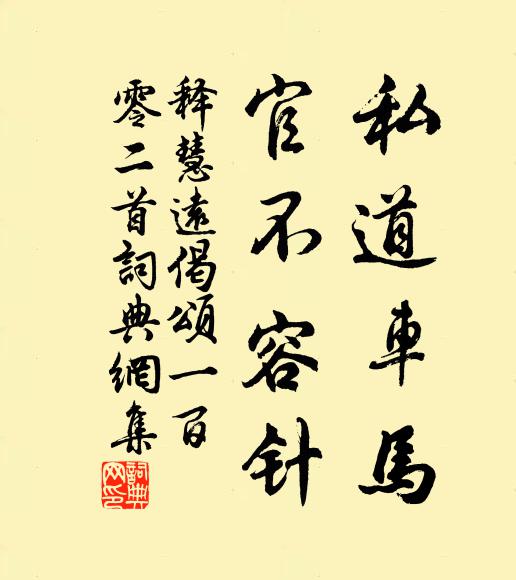 私道車馬
官不容针
释慧遠偈頌一百
零二首詞典網集
詞典
网印